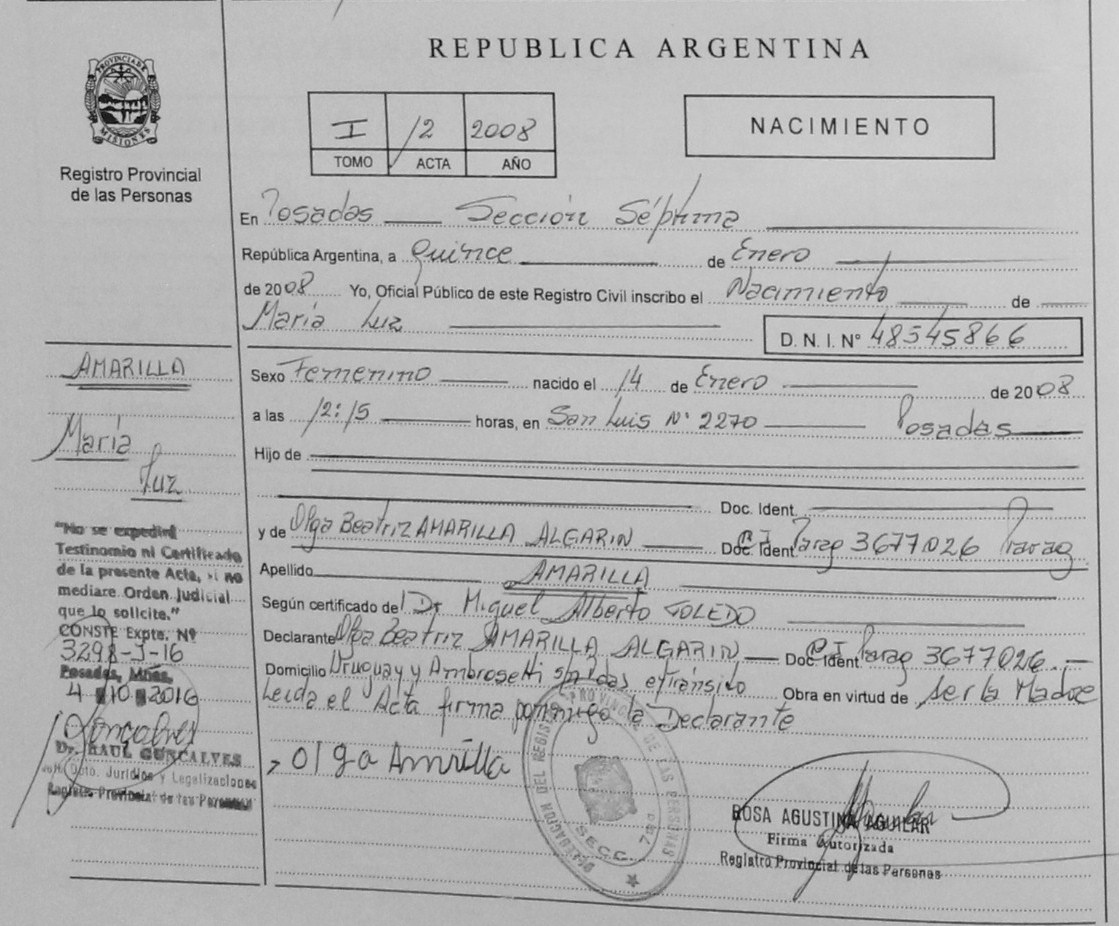 REPUBLICA ARGENTINA
PROVINCIA DE MISIONES
Registro Provincial
de las Personas
I 12 2008
TOMO ACTA AÑO
NACIMIENTO
En Posadas Sección Séptima
República Argentina, a Quince de Enero
de 2008 Yo, Oficial Público de este Registro Civil inscribo el Nacimiento de
María Luz
D. N. I. Nº 48545866
Sexo Femenino nacido el 14 de Enero de 2008
a las 12:15 horas, en San Luis Nº 2270 Posadas
Hijo de
Doc. Ident.
y de Olga Beatriz AMARILLA ALGARIN Doc. Ident C.I. Parag 3677026 Parag
Apellido AMARILLA
Según certificado del Dr Miguel Alberto TOLEDO
Declarante Olga Beatriz AMARILLA ALGARIN Doc. Ident C.I. Parag 3677026
Domicilio Uruguay y Ambrosetti Obra en virtud de Ser la Madre
Leída el Acta firma conmigo la Declarante
Olga Amarilla
DELEGACION DEL REGISTRO PROVINCIAL DE LAS PERSONAS
SECC. 7ma
ROSA AGUSTINA AGUILAR
Firma Autorizada
Registro Provincial de las Personas
AMARILLA
María
Luz
"No se expedirá
Testinomio ni Certificado
de la presente Acta, si no
mediare Orden Judicial
que lo solicite."
CONSTE Expte. Nº
3298-J-16
Posadas, Mnes,
4 10 2016
Goncalves
Dr. RAUL GONCALVES
Dpto. Jurídico y Legalizaciones
Registro Provincial de las Personas